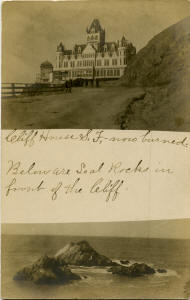 Cliff House S.F. - now burned.
Below are Seal Rocks in
front of the Cliff.